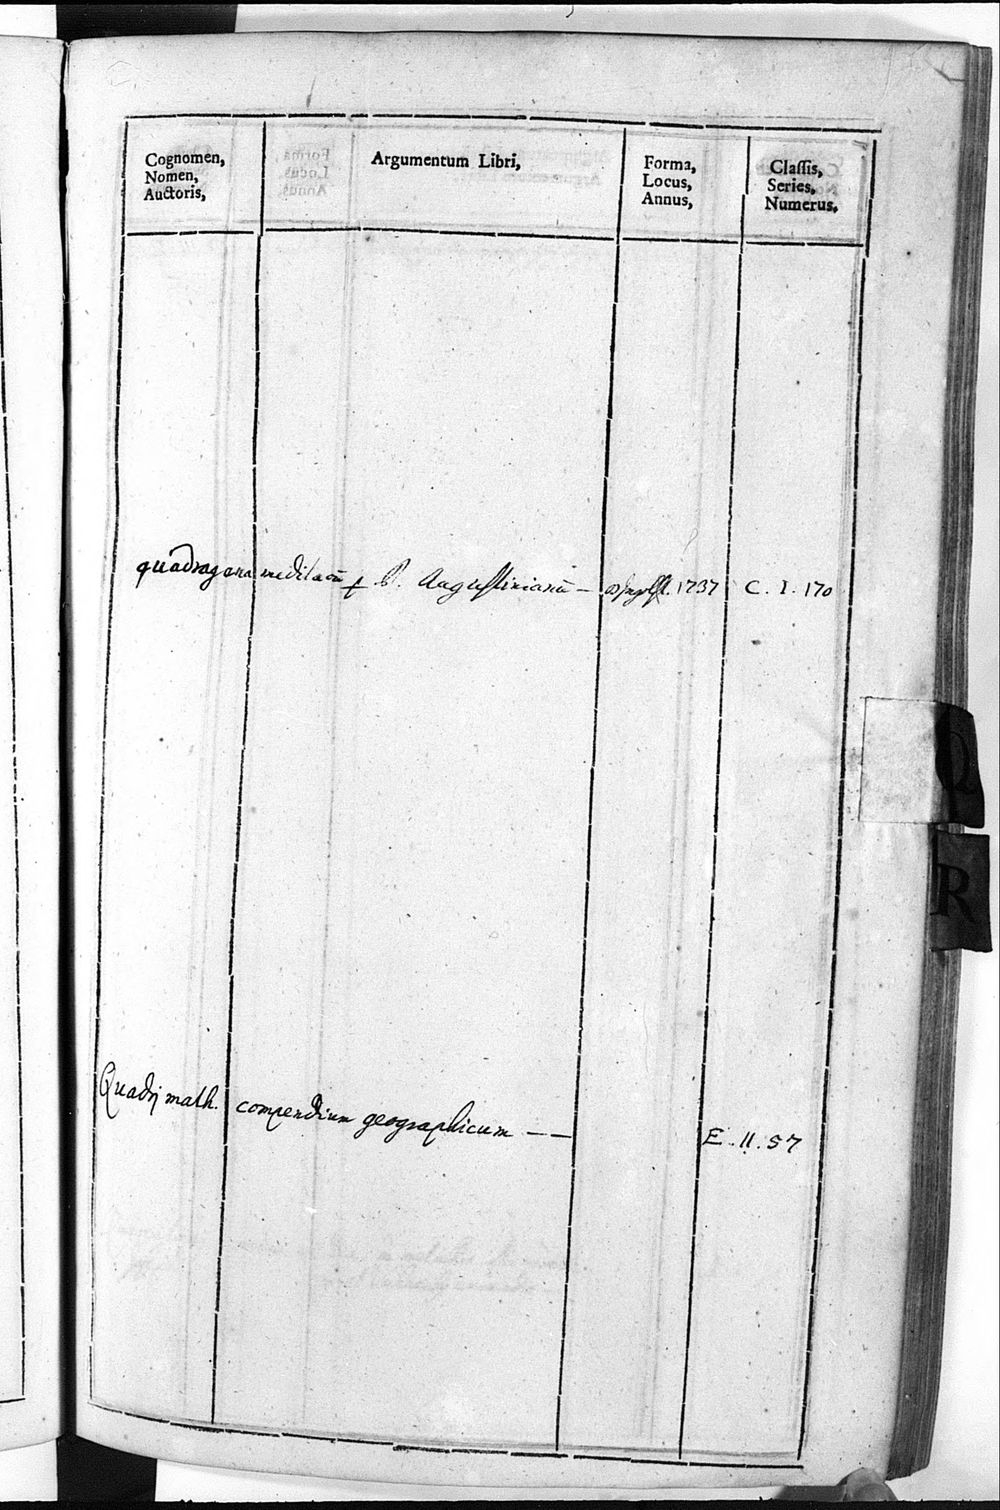 Cognomen,
Nomen,
Auctoris,
Argumentum Libri,
Forma,
Locus,
Annus,
Classis,
Series,
Numerus,
quadragena meditaōū P. Augustinianū — 1737 C. I. 170
Q
R
Quadrj math. compendium geographicum — — E. II. 57